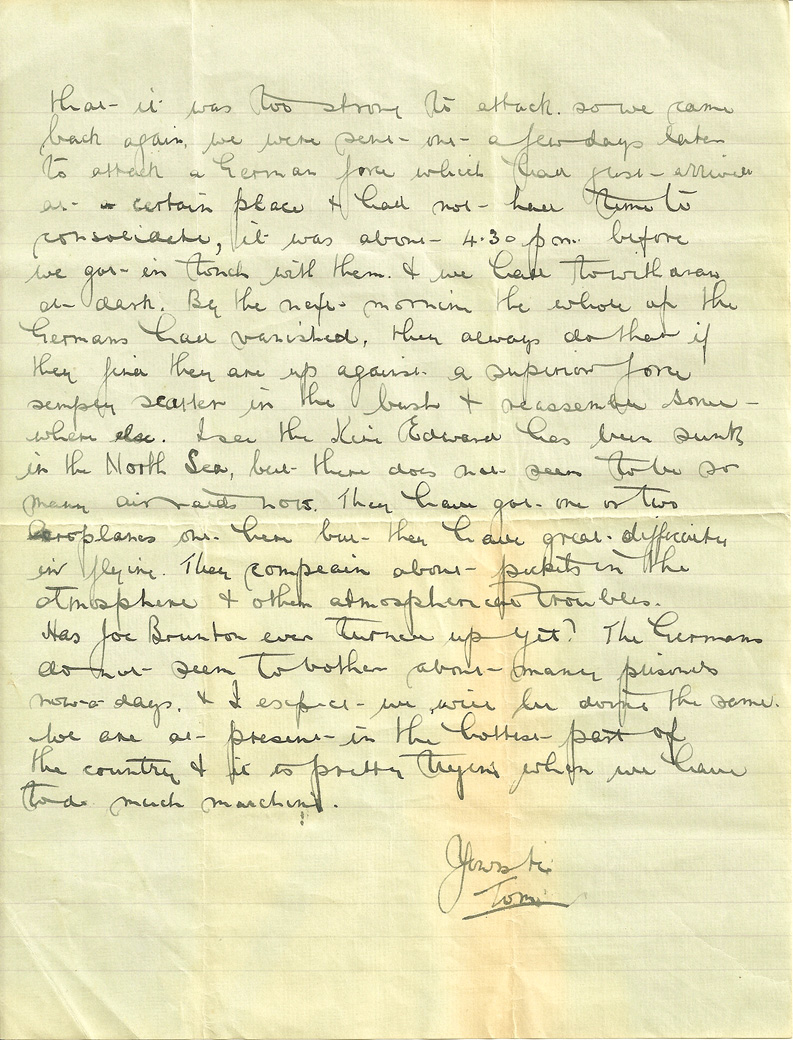 that it was too strong to attack. so we came
back again, we were sent out a few days later
to attack a German force which had just arrived
at a certain place & had not had time to
consolidate, it was about 4.30 pm. before
we got in touch with them. & we had to withdraw
at dark. By the next morning the whole of the
Germans had vanished, they always do that if
they find they are up against a superior force
simply scatter in the bush & reassemble some-
where else. I see the King Edward has been sunk
in the North Sea, but there does not seem to be so
many air raids now. They have got one or two
aeroplanes out here but they have great difficulty
in flying. They complain about pockets in the
atmosphere & other atmospherical troubles.
Has Joe Brunton ever turned up yet? The Germans
do not seem to bother about many prisoners
now-a-days, & I expect we will be doing the same.
We are at present in the hottest part of
the country & it is pretty trying when we have
to do much marching.
Yours
Tom